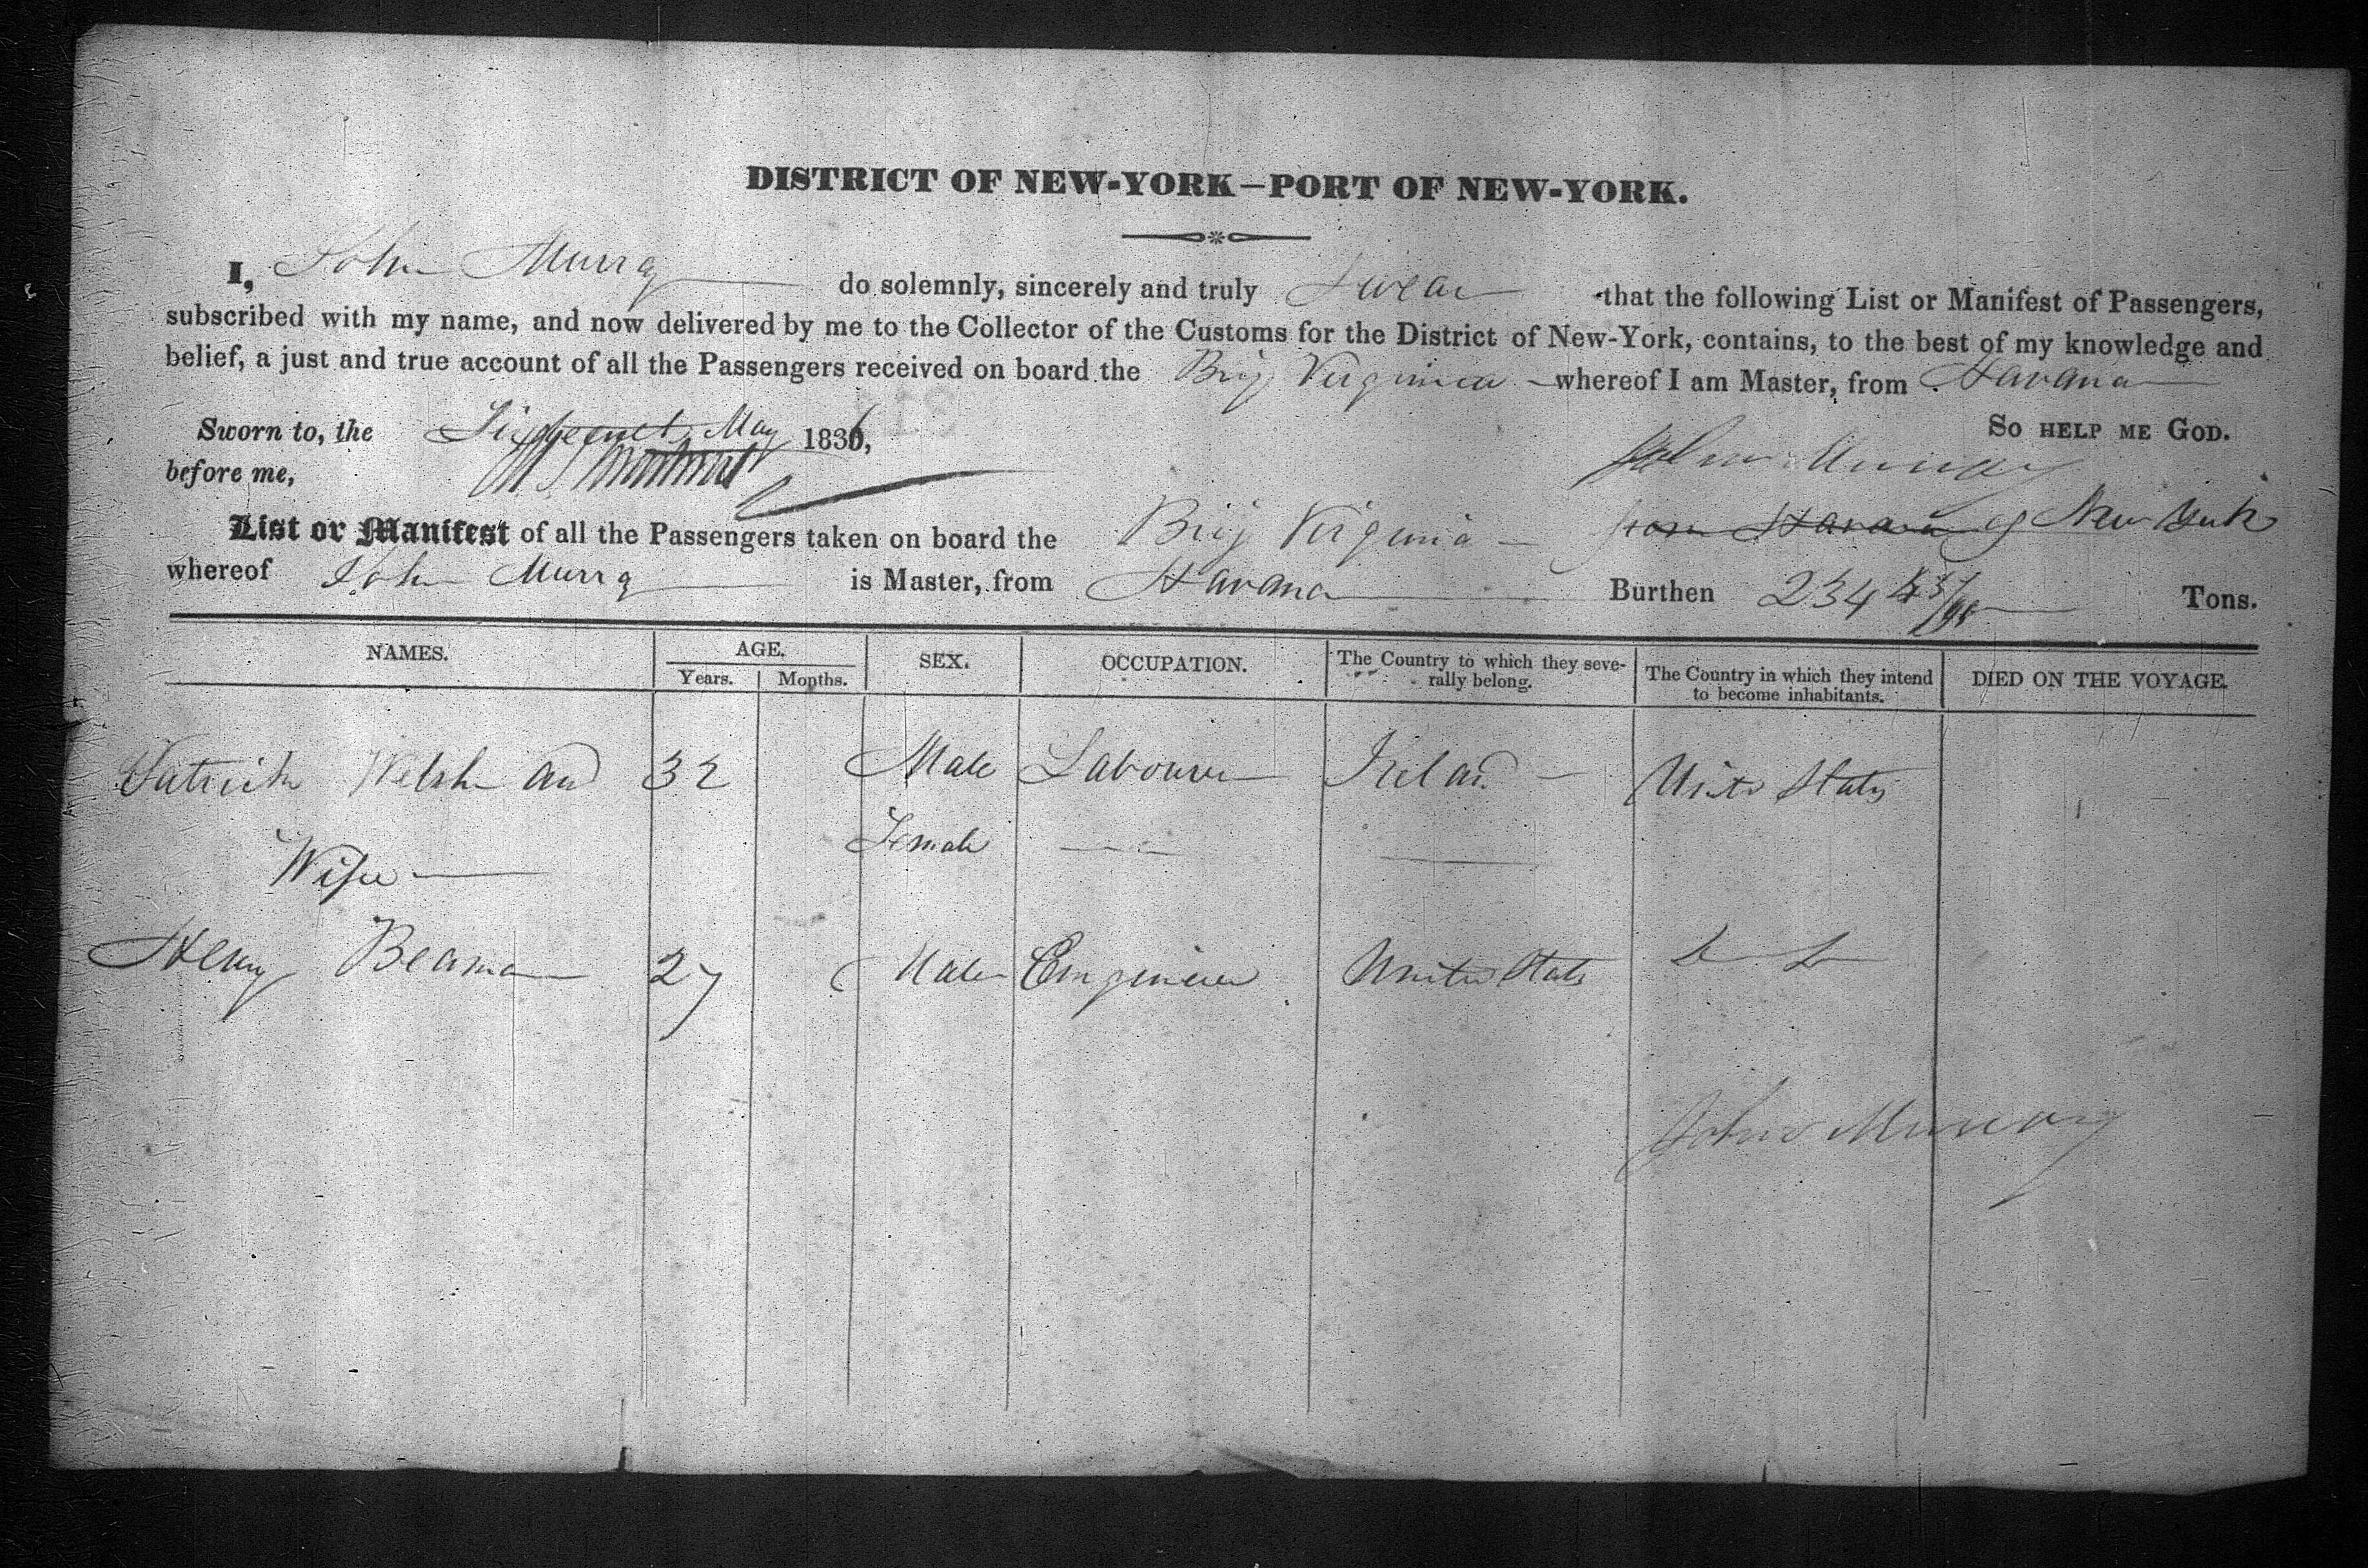 DISTRICT OF NEW-YORK—PORT OF NEW-YORK.
I, John Murray do solemnly, sincerely and truly Swear that the following List or Manifest of Passengers,
subscribed with my name, and now delivered by me to the Collector of the Customs for the District of New-York, contains, to the best of my knowledge and
belief, a just and true account of all the Passengers received on board the Brig Virginia whereof I am Master, from Havana
So HELP ME GOD.
Sworn to, the May 1836,
before me,
John Murray
List or Manifest of all the Passengers taken on board the Brig Virginia from Havana of New York
whereof John Murray is Master, from Havana Burthen 234 43/95 Tons.
NAMES. AGE. SEX. OCCUPATION. The Country to which they seve- The Country in which they intend DIED ON THE VOYAGE.
Years. Months. rally belong. to become inhabitants.
Patrick Welsh and 32 Male Labourer Ireland United States
Wife Female
Henry Beaman 27 Male Engineer United States
John Murray